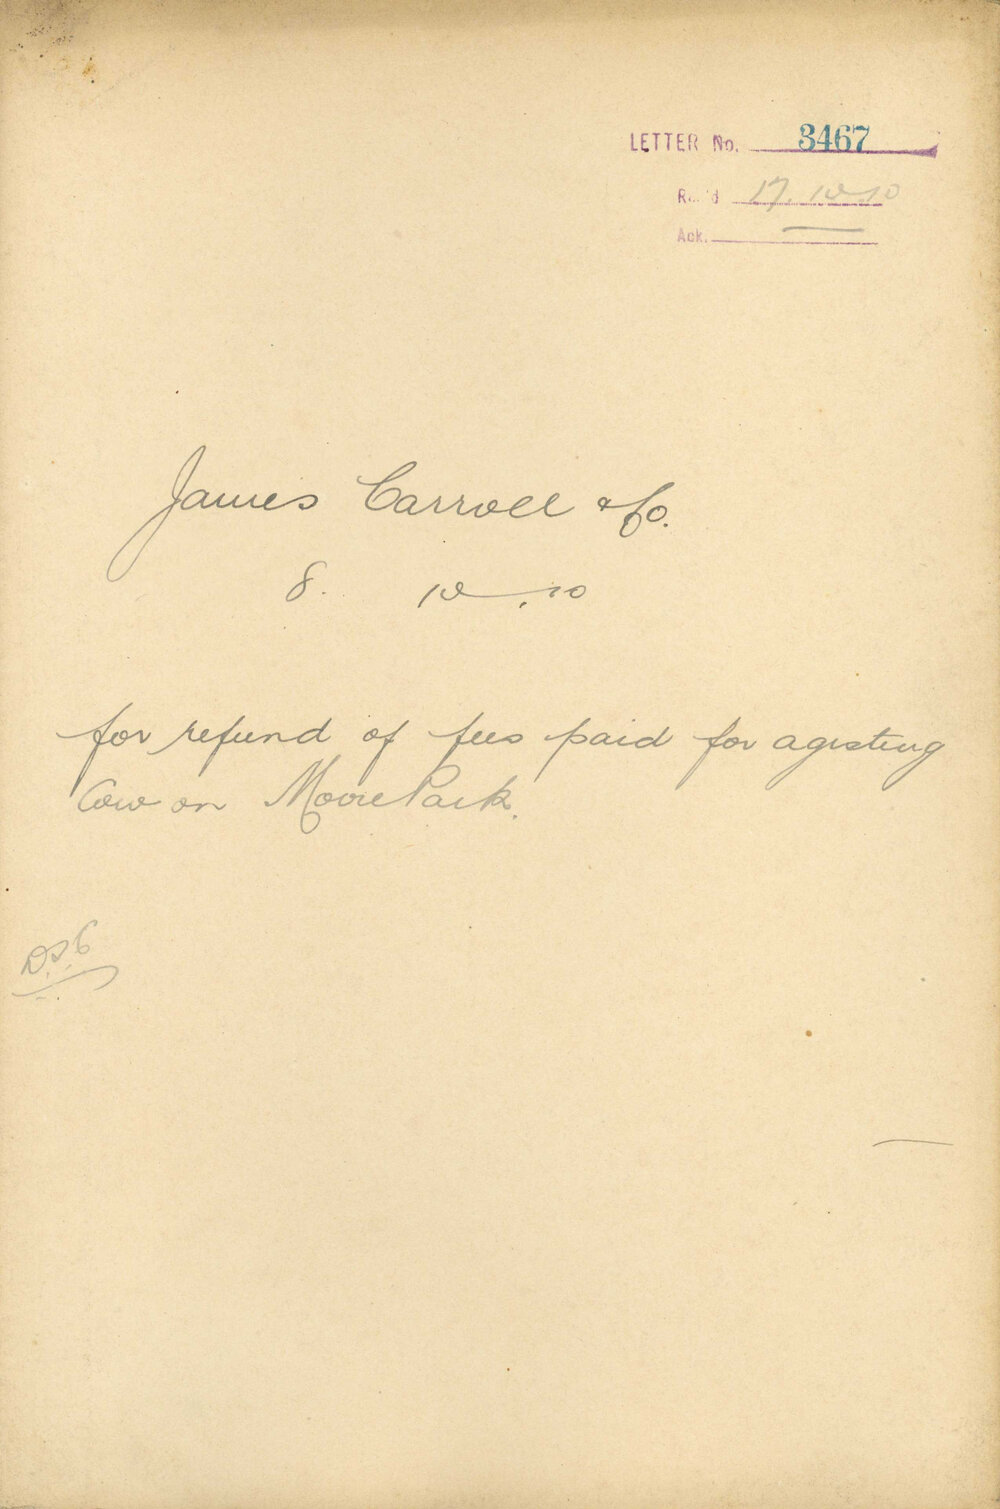 LETTER No. 3467
Rec'd 17. 10. 10
Ack.
James Carroll & Co.
8. 10. 10
for refund of fees paid for agisting
Cow on Moore Park.